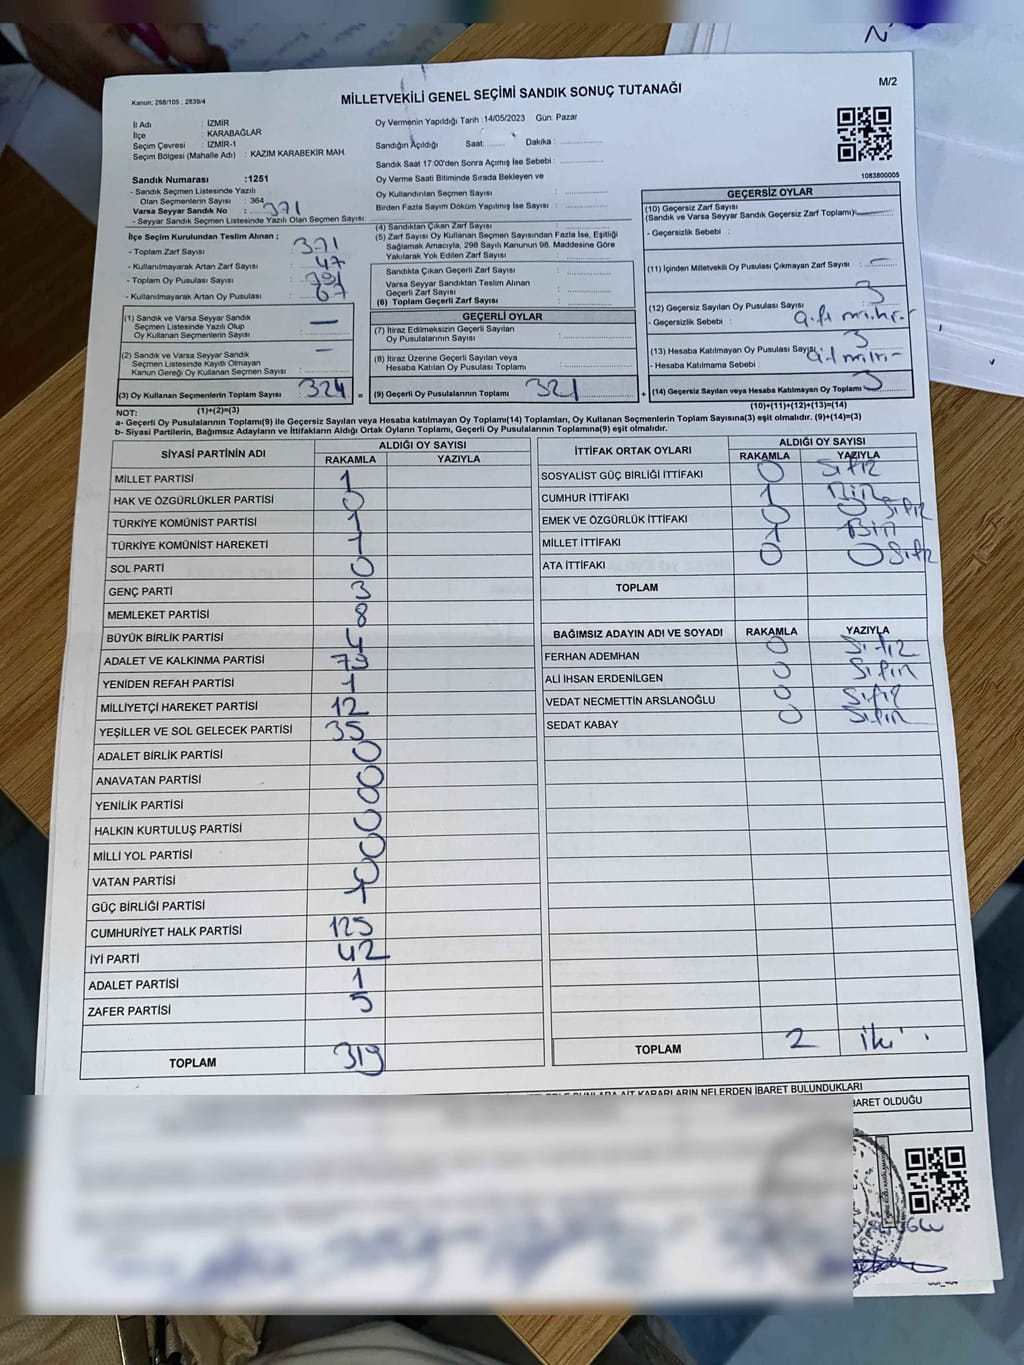 N
Kanun; 298/105 , 2839/4
MİLLETVEKİLİ GENEL SEÇİMİ SANDIK SONUÇ TUTANAĞI
M/2
İl Adı : İZMİR
İlçe : KARABAĞLAR
Seçim Çevresi : İZMİR-1
Seçim Bölgesi (Mahalle Adı) : KAZIM KARABEKİR MAH.
Oy Vermenin Yapıldığı Tarih :14/05/2023 Gün: Pazar
Sandığın Açıldığı Saat: Dakika :
Sandık Saat 17:00'den Sonra Açımış İse Sebebi :
Oy Verme Saati Bitiminde Sırada Bekleyen ve
Oy Kullandırılan Seçmen Sayısı :
Birden Fazla Sayım Döküm Yapılmış İse Sayısı :
1083800005
Sandık Numarası :1251
- Sandık Seçmen Listesinde Yazılı
Olan Seçmenlerin Sayısı : 364
Varsa Seyyar Sandık No : 371
- Seyyar Sandık Seçmen Listesinde Yazılı Olan Seçmen Sayısı:
İlçe Seçim Kurulundan Teslim Alınan ;
- Toplam Zarf Sayısı : 371
- Kullanılmayarak Artan Zarf Sayısı : 47
- Toplam Oy Pusulası Sayısı :
- Kullanılmayarak Artan Oy Pusulası : 67
(1) Sandık ve Varsa Seyyar Sandık
Seçmen Listesinde Yazılı Olup
Oy Kullanan Seçmenlerin Sayısı : —
(2) Sandık ve Varsa Seyyar Sandık
Seçmen Listesinde Kayıtlı Olmayan
Kanun Gereği Oy Kullanan Seçmen Sayısı : —
(3) Oy Kullanan Seçmenlerin Toplam Sayısı 324 =
(1)+(2)=(3)
(4) Sandıktan Çıkan Zarf Sayısı :
(5) Zarf Sayısı Oy Kullanan Seçmen Sayısından Fazla İse, Eşitliği
Sağlamak Amacıyla, 298 Sayılı Kanunun 98. Maddesine Göre
Yakılarak Yok Edilen Zarf Sayısı :
Sandıkta Çıkan Geçerli Zarf Sayısı :
Varsa Seyyar Sandıktan Teslim Alınan
Geçerli Zarf Sayısı :
(6) Toplam Geçerli Zarf Sayısı :
GEÇERLİ OYLAR
(7) İtiraz Edilmeksizin Geçerli Sayılan
Oy Pusulalarının Sayısı :
(8) İtiraz Üzerine Geçerli Sayılan veya
Hesaba Katılan Oy Pusulası Toplamı :
(9) Geçerli Oy Pusulalarının Toplamı 321 +
GEÇERSİZ OYLAR
(10) Geçersiz Zarf Sayısı
(Sandık ve Varsa Seyyar Sandık Geçersiz Zarf Toplamı) —
- Geçersizlik Sebebi :
(11) İçinden Milletvekili Oy Pusulası Çıkmayan Zarf Sayısı : —
(12) Geçersiz Sayılan Oy Pusulası Sayısı : 3
- Geçersizlik Sebebi :
(13) Hesaba Katılmayan Oy Pusulası Sayısı 3
- Hesaba Katılmama Sebebi :
(14) Geçersiz Sayılan veya Hesaba Katılmayan Oy Toplamı 3
(10)+(11)+(12)+(13)=(14)
NOT:
a- Geçerli Oy Pusulalarının Toplamı(9) ile Geçersiz Sayılan veya Hesaba katılmayan Oy Toplamı(14) Toplamları, Oy Kullanan Seçmenlerin Toplam Sayısına(3) eşit olmalıdır. (9)+(14)=(3)
b- Siyasi Partilerin, Bağımsız Adayların ve İttifakların Aldığı Ortak Oyların Toplamı, Geçerli Oy Pusulalarının Toplamna(9) eşit olmalıdır.
SİYASİ PARTİNİN ADI ALDIĞI OY SAYISI
RAKAMLA YAZIYLA
MİLLET PARTİSİ 1
HAK VE ÖZGÜRLÜKLER PARTİSİ 0
TÜRKİYE KOMÜNİST PARTİSİ 1
TÜRKİYE KOMÜNİST HAREKETİ 1
SOL PARTİ 0
GENÇ PARTİ 3
MEMLEKET PARTİSİ 8
BÜYÜK BİRLİK PARTİSİ 4
ADALET VE KALKINMA PARTİSİ
YENİDEN REFAH PARTİSİ 1
MİLLİYETÇİ HAREKET PARTİSİ 12
YEŞİLLER VE SOL GELECEK PARTİSİ 35
ADALET BİRLİK PARTİSİ 0
ANAVATAN PARTİSİ 0
YENİLİK PARTİSİ 0
HALKIN KURTULUŞ PARTİSİ 0
MİLLİ YOL PARTİSİ 0
VATAN PARTİSİ 0
GÜÇ BİRLİĞİ PARTİSİ 1
CUMHURİYET HALK PARTİSİ 125
İYİ PARTİ 42
ADALET PARTİSİ 1
ZAFER PARTİSİ 5
TOPLAM 319
İTTİFAK ORTAK OYLARI ALDIĞI OY SAYISI
RAKAMLA YAZIYLA
SOSYALİST GÜÇ BİRLİĞİ İTTİFAKI 0 Sıfır
CUMHUR İTTİFAKI 1 Bir
EMEK VE ÖZGÜRLÜK İTTİFAKI 0 0 Sıfır
MİLLET İTTİFAKI 1 Bir
ATA İTTİFAKI 0 0 Sıfır
TOPLAM
BAĞIMSIZ ADAYIN ADI VE SOYADI RAKAMLA YAZIYLA
FERHAN ADEMHAN 0 Sıfır
ALİ İHSAN ERDENİLGEN 0 Sıfır
VEDAT NECMETTİN ARSLANOĞLU 0 Sıfır
SEDAT KABAY 0 Sıfır
TOPLAM 2 iki
KARARLARIN NELERDEN İBARET BULUNDUKLARI
İBARET OLDUĞU